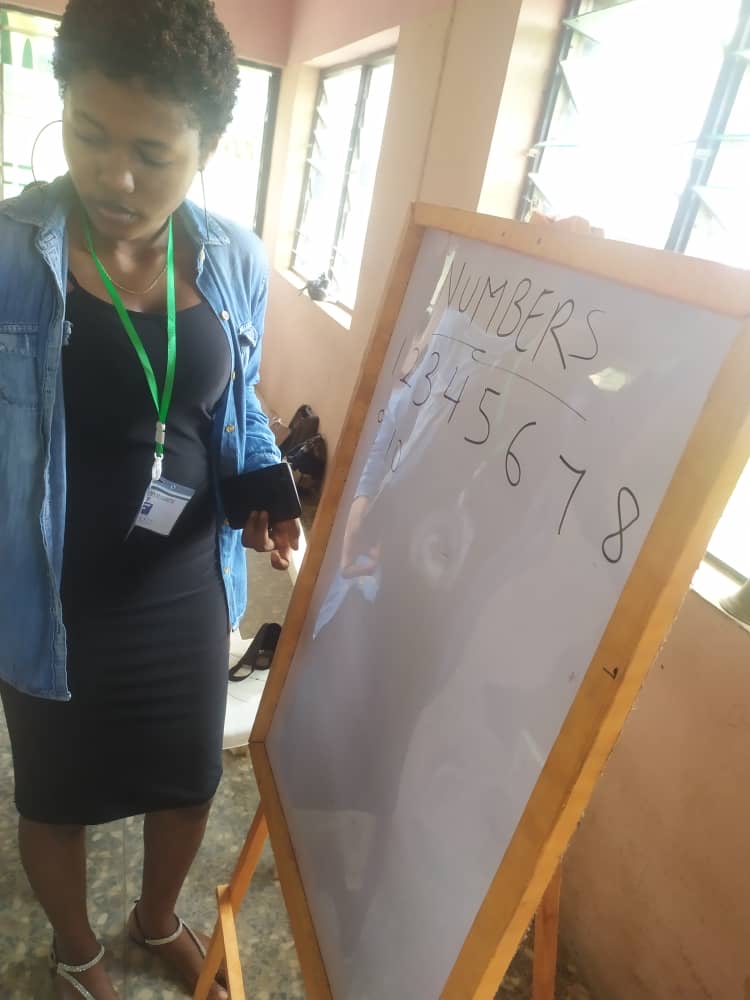 NUMBERS
1 2 3 4 5 6 7 8
9 10